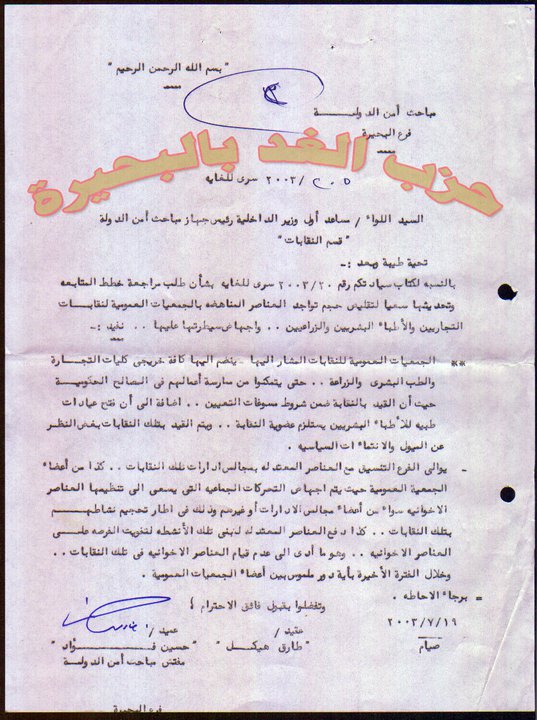 " بسم الله الرحمن الرحيم "
مباحث أمن الدولــة
فرع البحيرة
حزب الغد بالبحيرة
/٢٠٠٣ سرى للغايه
السيد اللواء / مساعد أول وزير الداخلية رئيس جهاز مباحث أمن الدولة
" قسم النقابات "
تحية طيبة وبعد :ـ
بالنسبه لكتاب سيادتكم رقم ٢٠٠٣/٢٠ سرى للغايه بشأن طلب مراجعة خطط المتابعه
وتحديثها سعيا لتقليص حجم تواجد العناصر المناهضه بالجمعيات العمومية لنقابـــات
التجاريين والأطباء البشريين والزراعيين .. واجهاض سيطرتها عليها .. نفيد :ـ
** الجمعيات العمومية للنقابات المشار اليها ـ ينضم اليها كافة خريجى كليات التجــارة
والطب البشرى والزراعة .. حتى يتمكنوا من ممارسة أعمالهم فى المصالح الحكوميـة
حيث أن القيد بالنقابة ضمن شروط مسوغات التعيين .. اضافة الى أن فتح عيادات
طبيه للأطباء البشريين يستلزم عضوية النقابة .. ويتم القيد بتلك النقابات بغض النظر
عن الميول والانتماءات السياسيه .
ـ يوالى الفرع التنسيق مع العناصر المعتدله بمجالس ادارات تلك النقابات .. كذا من أعضاء
الجمعية العمومية حيث يتم اجهاض التحركات الجماعيه التى يسعى الى تنظيمها العناصر
الاخوانيه سواء من أعضاء مجالس الادارات أو غيرهم وذلك فى اطار تحجيم نشاطهـــم
بتلك النقابات .. كذا دفع العناصر المعتدله لتبنى تلك الأنشطه لتفويت الفرصه علــى
العناصر الاخوانيه .. وهو ما أدى الى عدم قيام العناصر الاخوانيه فى تلك النقابات ..
وخلال الفترة الأخيرة بأية دور ملموس بين أعضاء الجمعيات العمومية .
= برجاء الاحاطه .
وتفضلوا بقبول فائق الاحترام ؛
٢٠٠٣/٧/١٩
عقيد /
عميد /
صيام
" طارق هيكــل "
" حسين فــؤاد "
مفتش مباحث أمن الدولـة
فرع البحيرة